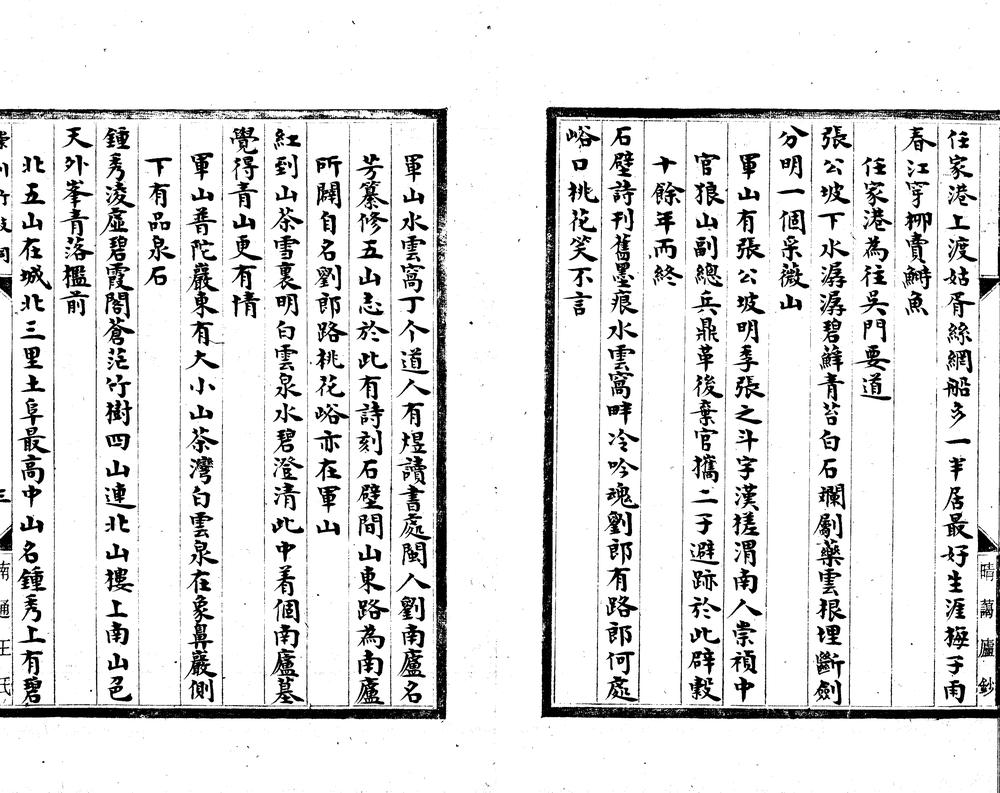 晴藹廬鈔
任家港上渡姑胥絲網船多一半居最好生涯梅子雨
春江穿柳賣鰣魚
任家港為往吳門要道
張公坡下水潺潺碧蘚青苔白石斕斸藥雲根埋斷劍
分明一個采薇山
軍山有張公坡明季張之斗字漢槎渭南人崇禎中
官狼山副總兵鼎革後棄官攜二子避跡於此辟穀
十餘年而終
石壁詩刊舊墨痕水雲窩畔冷吟魂劉郎有路郎何處
峪口桃花笑不言
軍山水雲窩丁个道人有煜讀書處閩人劉南廬名
芳纂修五山志於此有詩刻石壁間山東路為南廬
所闢自名劉郎路桃花峪亦在軍山
紅到山茶雪裏明白雲泉水碧澄清此中着個南廬墓
覺得青山更有情
軍山普陀巖東有大小山茶灣白雲泉在象鼻巖側
下有品泉石
鍾秀凌虛碧霞閣蒼茫竹樹四山連北山摟上南山色
天外峯青落檻前
北五山在城北三里土阜最高中山名鍾秀上有碧
崇川竹枝詞
三
南通王氏